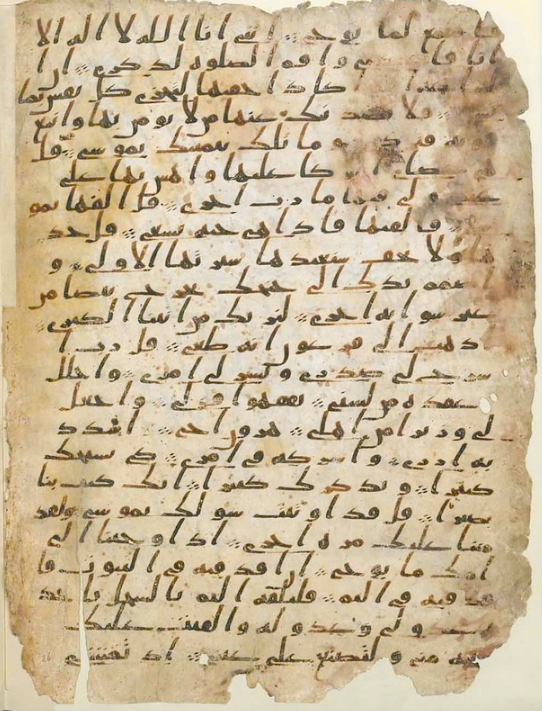 لما يوحى انني انا الله لا اله الا
انا فاعبدني واقم الصلوه لذكري ان ا
اكاد اخفيها لتجزى كل نفس بما
فلا يصدنك عنها من لا يومن بها واتبع
هويه فتردى وما تلك بيمينك يموسى قل
هي عصاي عليها واهش بها على
غنمي ولي فيها مارب اخرى قل القها يمو
سى فالقيها فاذا هي حيه تسعى قل خذ
ها ولا تخف سنعيدها سيرتها الاولى و
اضمم يدك الى جنحك تخرج بيضا من
غير سو ايه اخرى لنريك من ايتنا الكبرى
اذهب الى فرعون انه طغى قل رب ا
شرح لي صدري ويسر لي امري واحلل
عقده من لسني يفقهوا قولي واجعل
لي وزيرا من اهلي هرون اخي اشدد
به ازري واشركه في امري كي نسبحك
كثيرا ونذكرك كثيرا انك كنت بنا
بصيرا قل قد اوتيت سولك يموسى ولقد
مننا عليك مره اخرى اذ اوحينا الى
امك ما يوحى ان اقذفيه في التبوت فا
قذفيه في اليم فليلقه اليم بالسحل ياخذ
ه عدو لي وعدو له والقيت عليك
محبه مني ولتصنع على عيني اذ تمشي